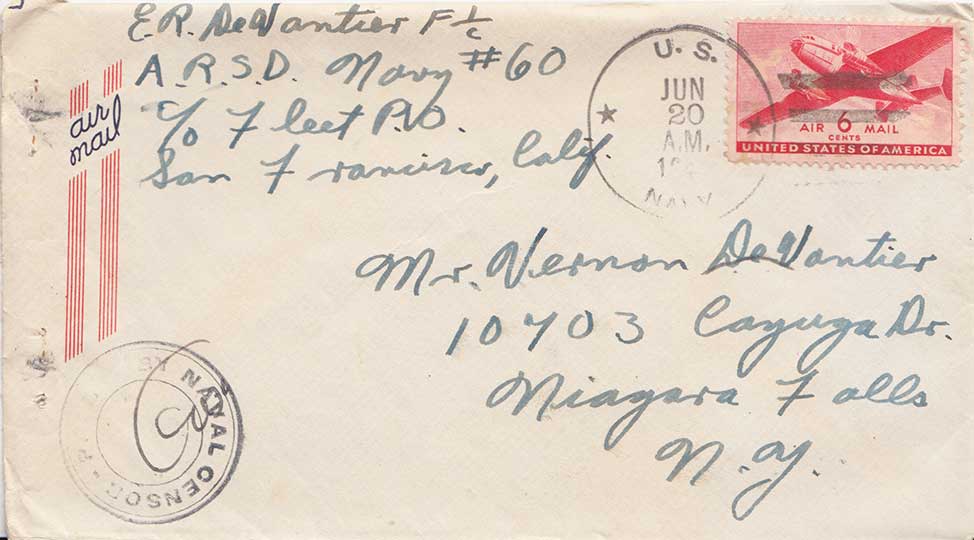 E.R. DeVantier F 1/c
A.R.S.D. Navy #60
c/o Fleet P.O.
San Francisco, Calif.
air
mail
U. S.
JUN
20
A.M.
NAVY
AIR 6 MAIL
CENTS
UNITED STATES OF AMERICA
Mr. Vernon DeVantier
10703 Cayuga Dr.
Niagara Falls
N.Y.
BY NAVAL CENSOR